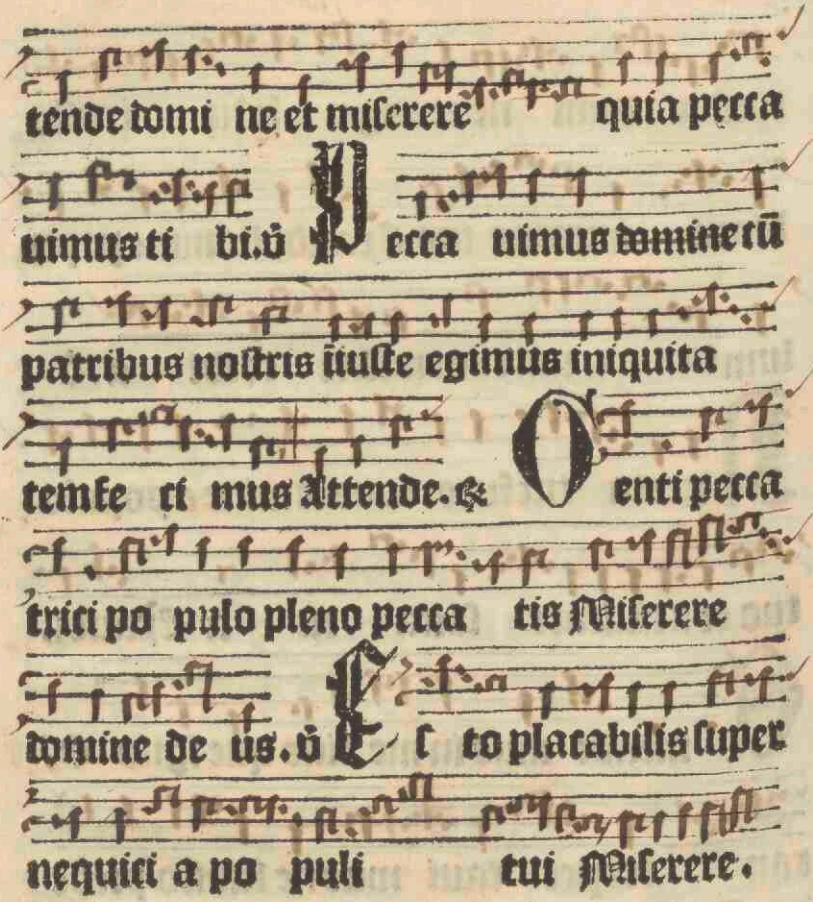 tende domi ne et miserere quia pecca
uimus ti bi. v̄ P ecca uimus domine cū
patribus nostris iīuste egimus iniquita
tem fe ci mus Attende. & O enti pecca
trici po pulo pleno pecca tis Miserere
domine de us. v̄ E s to placabilis super
nequici a po puli tui Miserere.